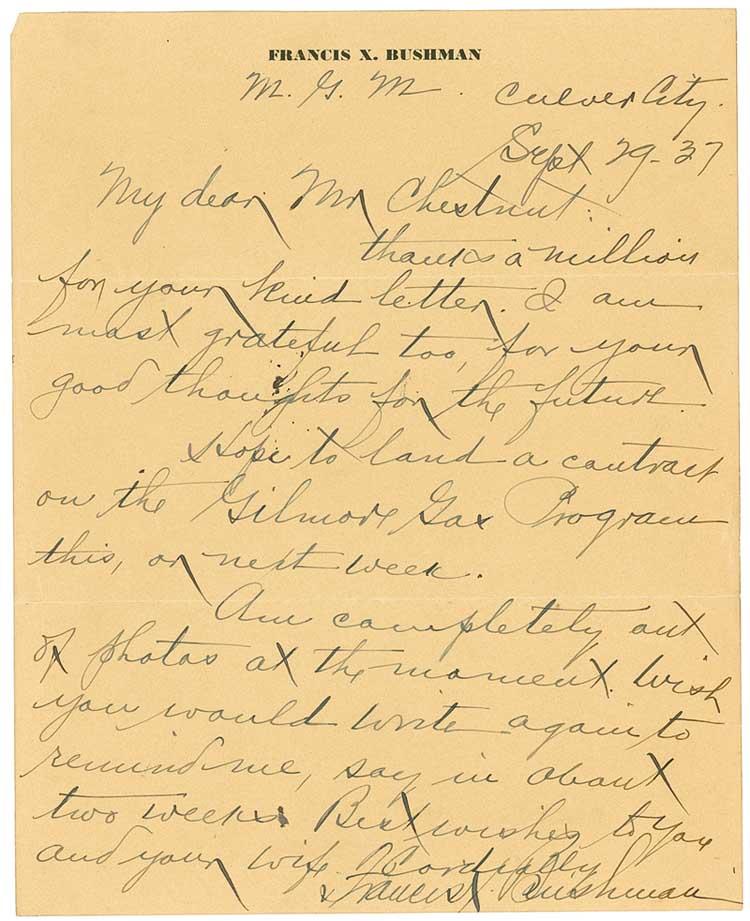 FRANCIS X. BUSHMAN
M. G. M. Culver City.
Sept 29-37
My dear Mr Chestnut:
thanks a million
for your kind letter. I am
most grateful too, for your
good thoughts for the future.
Hope to land a contract
on the Gilmore Gas Program
this, or next week.
Am completely out
of photos at the moment. Wish
you would write again to
remind me, say in about
two weeks. Best wishes to you
and your wife. Cordially
Francis X. Bushman